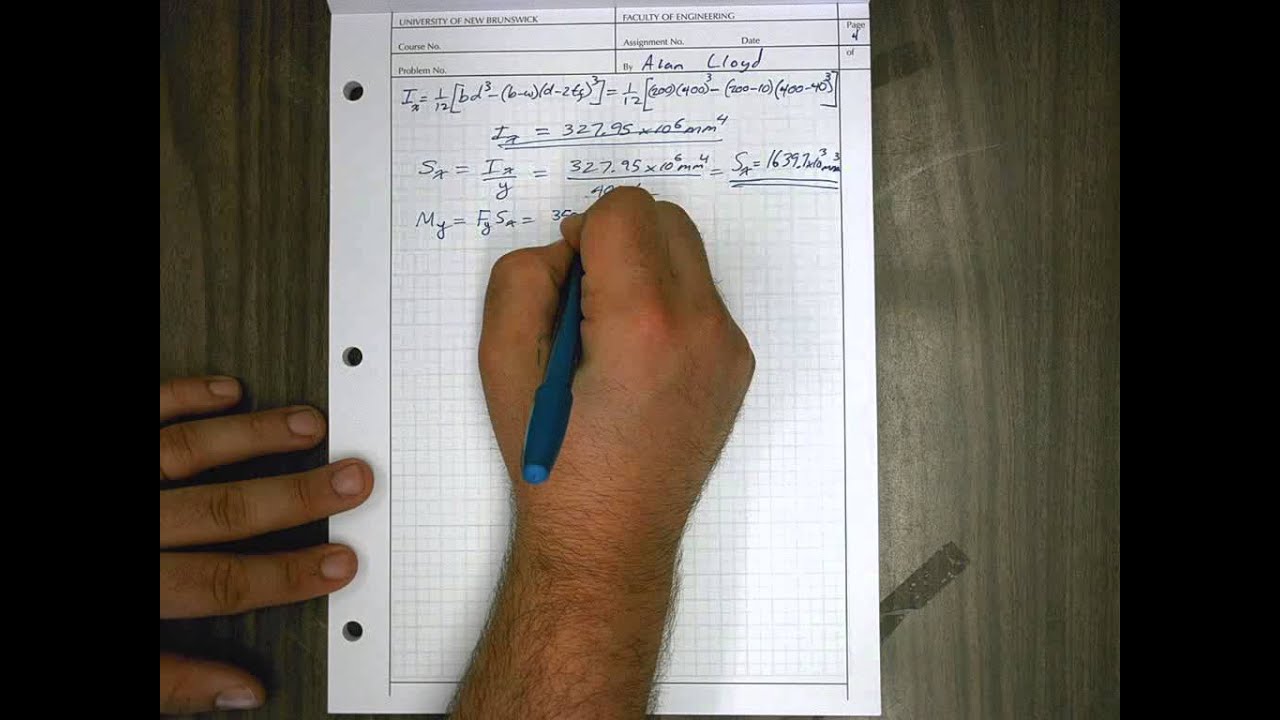 UNIVERSITY OF NEW BRUNSWICK FACULTY OF ENGINEERING Page 4
Course No. Assignment No. Date of
Problem No. By Alan Lloyd
Iₓ = 1/12 [bd³ - (b-w)(d-2tf)³] = 1/12 [(200)(400)³ - (200-10)(400-40³)]
Iₓ = 327.95 x 10⁶ mm⁴
Sₓ = Iₓ/y = 327.95 x 10⁶ mm⁴ / = Sₓ = 1639.7 x 10³ mm³
My = Fy Sₓ =